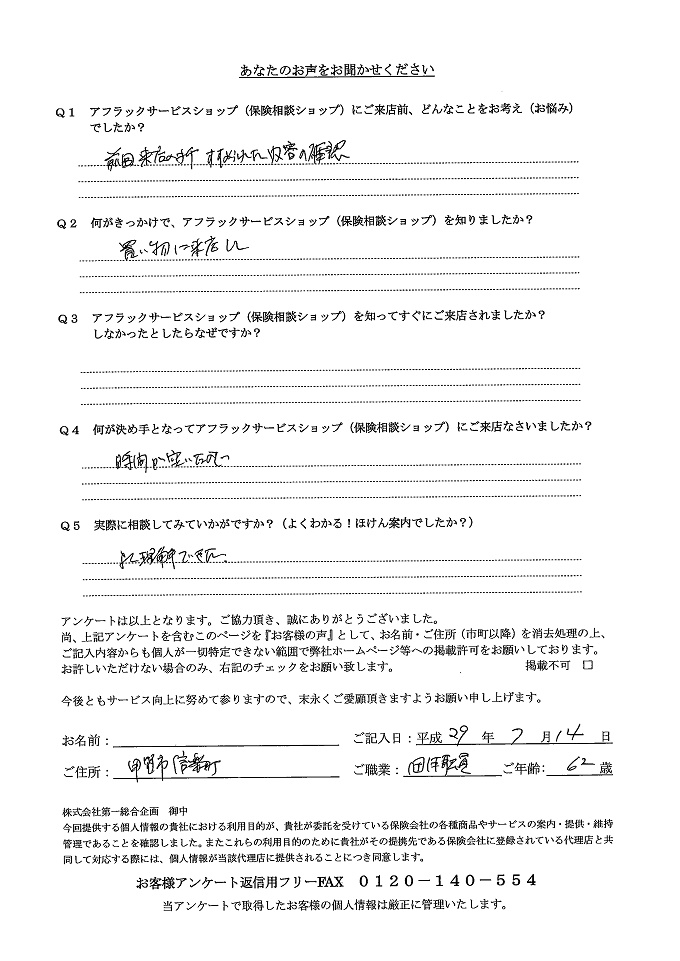 あなたのお声をお聞かせください
Q1 アフラックサービスショップ（保険相談ショップ）にご来店前、どんなことをお考え（お悩み）
でしたか？
前回来店の折 すすめられた内容の確認
Q2 何がきっかけで、アフラックサービスショップ（保険相談ショップ）を知りましたか？
買い物に来店し
Q3 アフラックサービスショップ（保険相談ショップ）を知ってすぐにご来店されましたか？
しなかったとしたらなぜですか？
Q4 何が決め手となってアフラックサービスショップ（保険相談ショップ）にご来店なさいましたか？
時間が空いた
Q5 実際に相談してみていかがですか？（よくわかる！ほけん案内でしたか？）
理解できた
アンケートは以上となります。ご協力頂き、誠にありがとうございました。
尚、上記アンケートを含むこのページを『お客様の声』として、お名前・ご住所（市町以降）を消去処理の上、
ご記入内容からも個人が一切特定できない範囲で弊社ホームページ等への掲載許可をお願いしております。
お許しいただけない場合のみ、右記のチェックをお願い致します。 掲載不可 □
今後ともサービス向上に努めて参りますので、末永くご愛顧頂きますようお願い申し上げます。
お名前： ご記入日：平成 29 年 7 月 14 日
ご住所： 甲賀市信楽町 ご職業： 団体職員 ご年齢： 62 歳
株式会社第一総合企画 御中
今回提供する個人情報の貴社における利用目的が、貴社が委託を受けている保険会社の各種商品やサービスの案内・提供・維持
管理であることを確認しました。またこれらの利用目的のために貴社がその提携先である保険会社に登録されている代理店と共
同して対応する際には、個人情報が当該代理店に提供されることにつき同意します。
お客様アンケート返信用フリーFAX 0120－140－554
当アンケートで取得したお客様の個人情報は厳正に管理いたします。